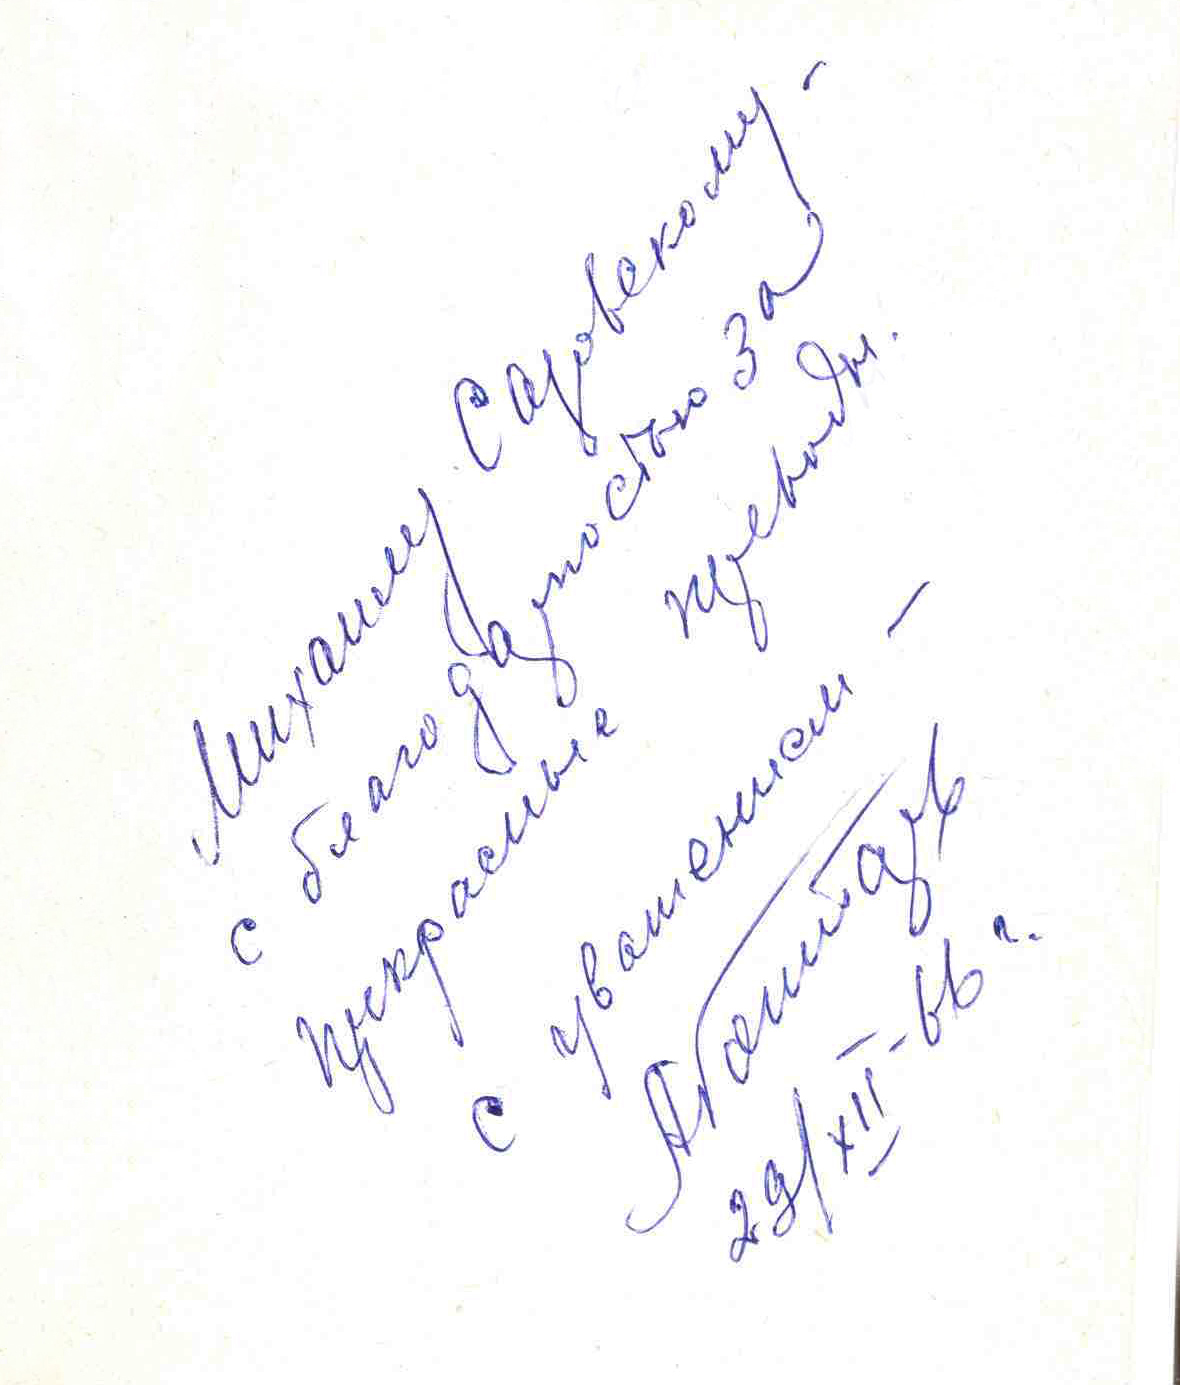 Михаилу Садовскому –
с благодарностью за
прекрасные переводы.
с уважением –
29/XII-66 г.